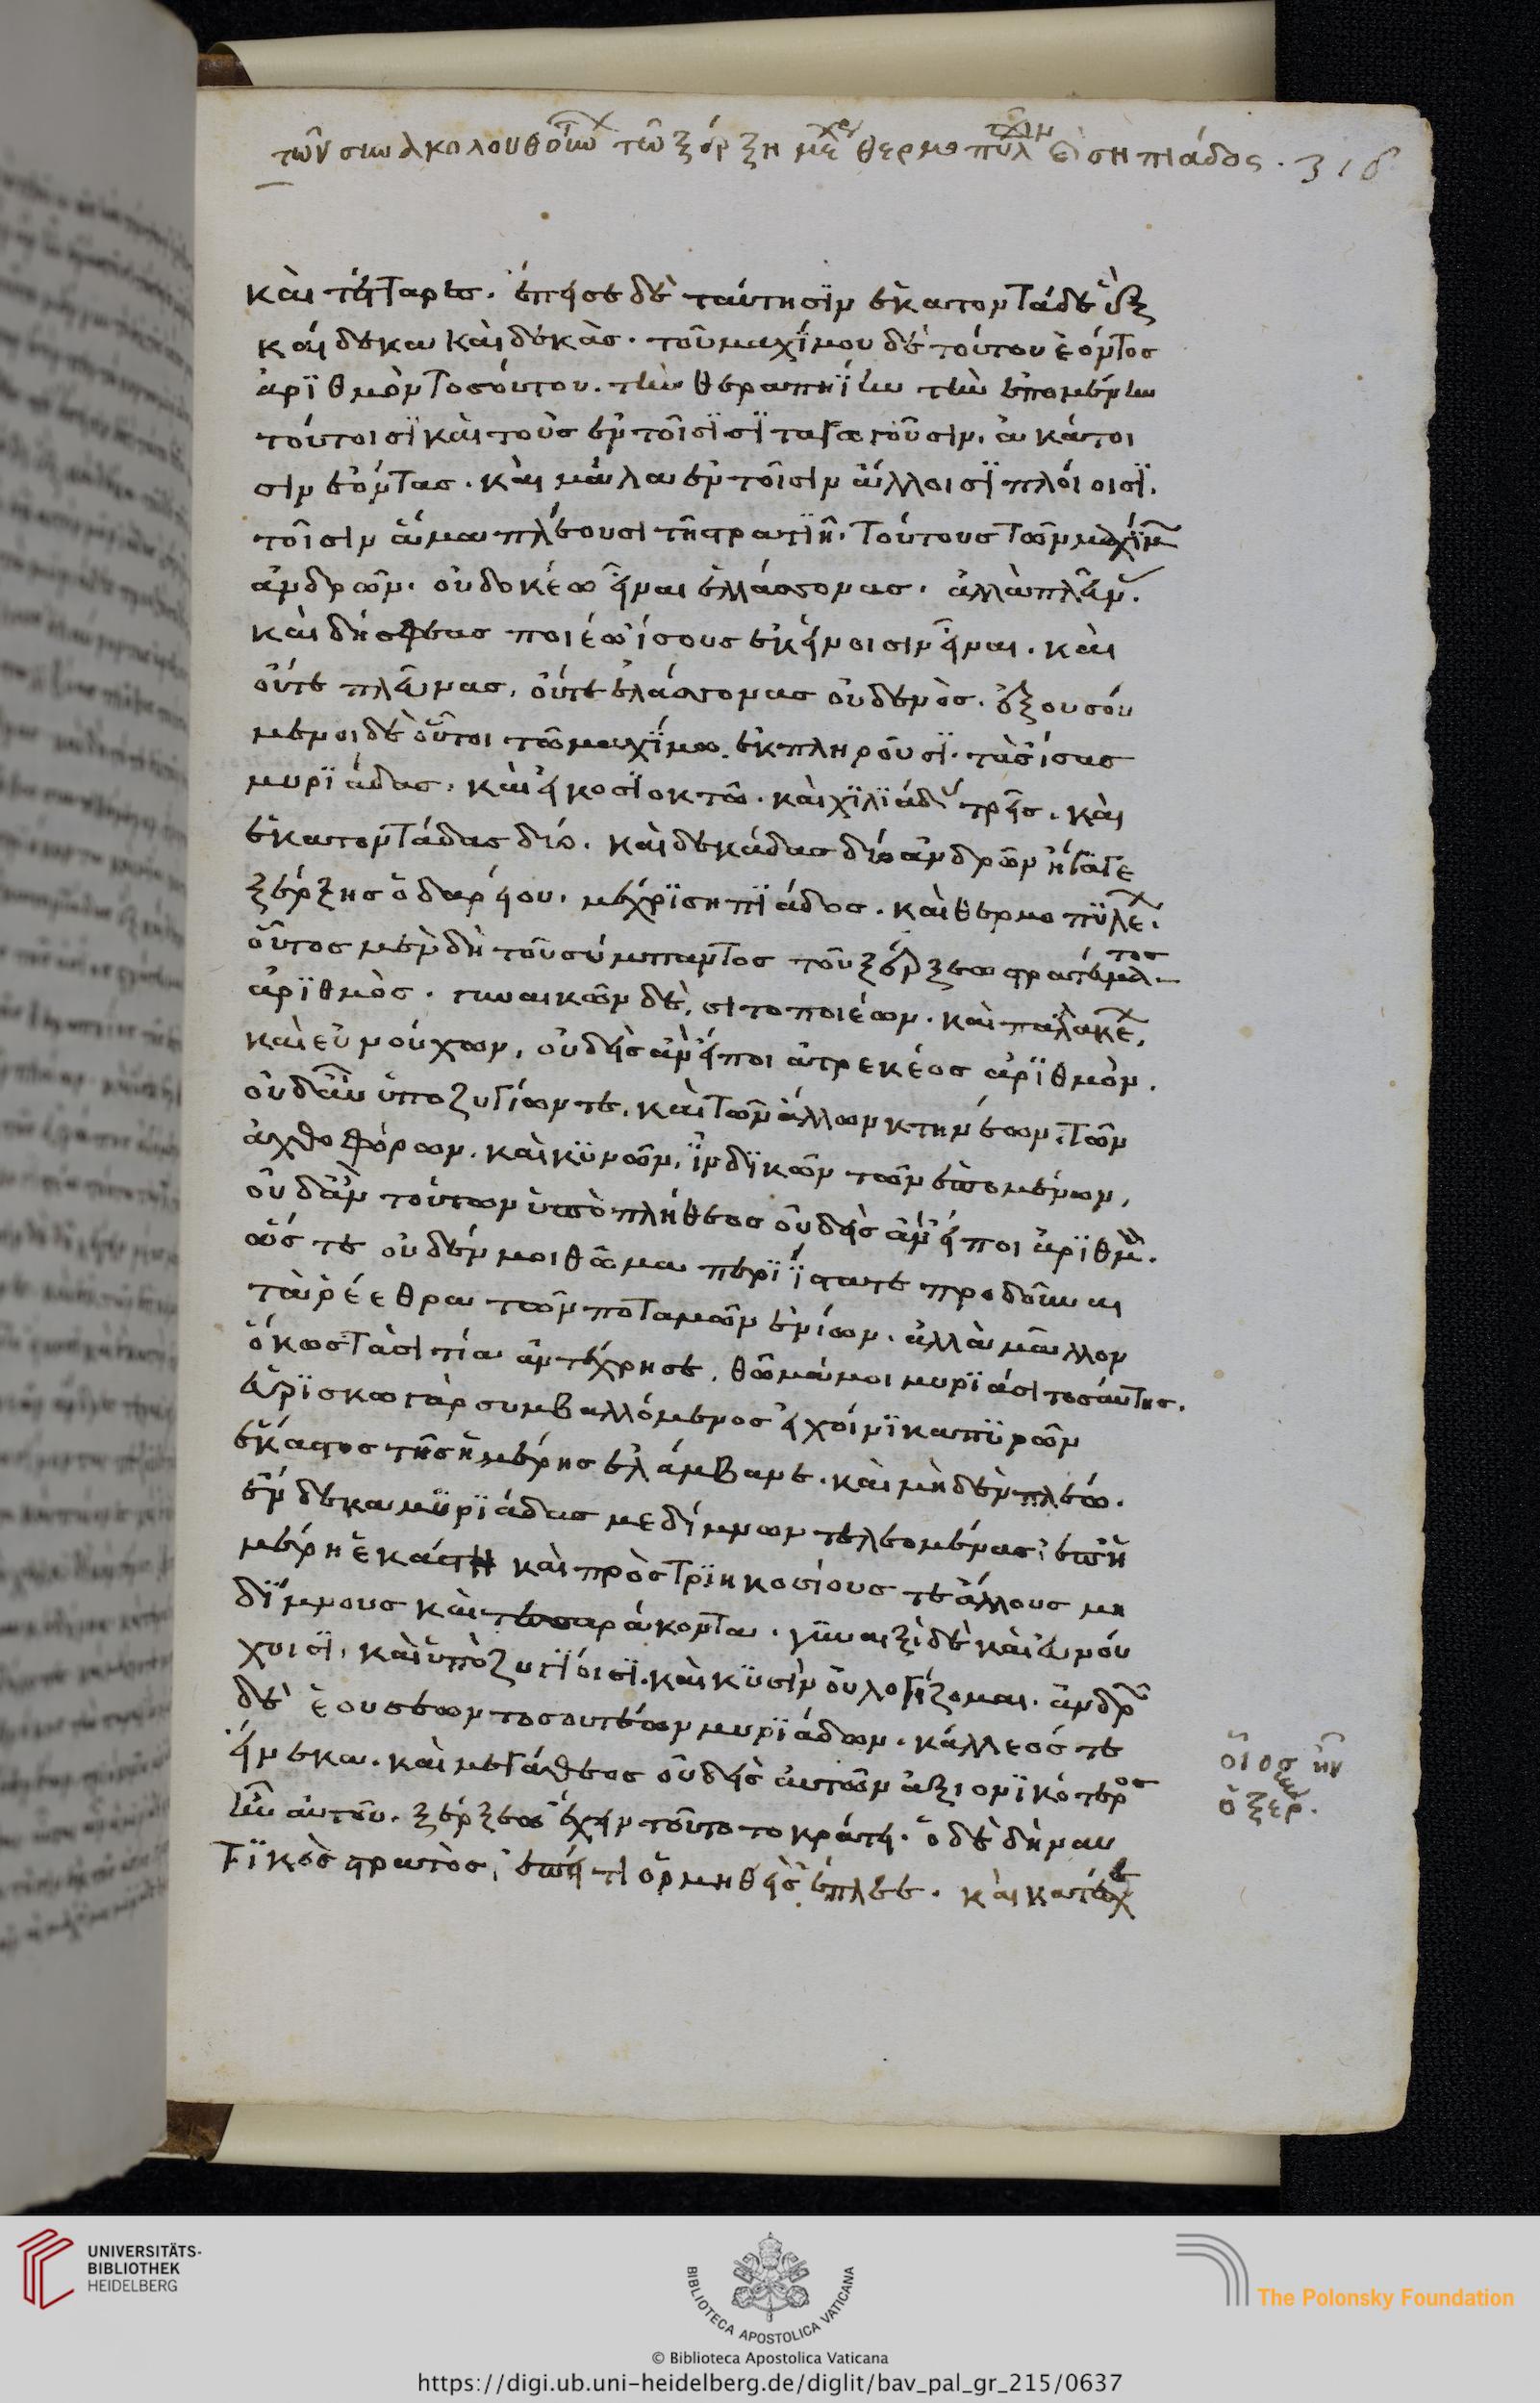 τῶν συνακολουθούντων τῶ ξέρξη μέχρι θερμοπυλῶν καὶ σηπιάδος. 318
καὶ τέσσαρες. ἔπεισε δὲ ταύτησιν ἑκατοντάδες ἓξ
καίδεκα καὶ δεκάς. τοῦ μαχίμου δὲ τούτου ἐόντος
ἀριθμὸν τοσούτου. τὴν θεραπηίην τὴν ἑπομένην
τούτοισι καὶ τοὺς ἐν τοῖσι σιταγωγοῦσιν ἀκάτοι
σιν ἐόντας. καὶ μάλα ἐν τοῖσιν ἄλλοισι πλοίοισι.
τοῖσιν ἅμα πλέουσι τῆ στρατιῆ. τούτους τῶν μαχίμων
ἀνδρῶν. οὐ δοκέω εἶναι ἐλλάσσονας. ἀλλὰ πλεῦν.
καὶ δή σφεας ποιέω ἴσους ἐκείνοισιν εἶναι. καὶ
οὔτε πλεῦνας, οὔτε ἐλάσσονας οὐδενός. ἐξουσού
μενοι δὲ οὗτοι τῶ μαχίμω. ἐκπληροῦσι τὰς ἴσας
μυριάδας. καὶ εἴκοσι ὀκτώ. καὶ χιλιάδας τρεῖς. καὶ
ἑκατοντάδας δύο. καὶ δεκάδας δύο ἀνδρῶν ἤγαγε
ξέρξης ὁ δαρείου. μέχρι σηπιάδος. καὶ θερμοπυλέων.
οὗτος μὲν δὴ τοῦ σύμπαντος τοῦ ξέρξεω στρατεύματος
ἀριθμός. γυναικῶν δὲ, σιτοποιέων. καὶ παλακέων,
καὶ εὐνούχων, οὐδεὶς ἂν εἴποι ἀτρεκέος ἀριθμόν.
οὐδ' ἂν ὑποζυγίων τε, καὶ τῶν ἄλλων κτηνέων, τῶν
ἀχθοφόρων. καὶ κυνῶν, ἰνδικῶν τῶν ἑπομένων,
οὐδ' ἂν τούτων ὑπὸ πλήθεος οὐδεὶς ἂν εἴποι ἀριθμόν.
ὥς τε οὐδέν μοι θῶμα περιίσταται προδοῦναι
τὰ ῥέεθρα τῶν ποταμῶν ἐνίων. ἀλλὰ μᾶλλον
ὅκως τὰ σιτία ἀντέχρησε, θῶμά μοι μυριάσι τοσαύτης.
εὑρίσκω γὰρ συμβαλλόμενος εἰ χοίνικα πυρῶν
ἕκαστος τῆς ἡμέρης ἐλάμβανε. καὶ μηδὲν πλέω.
ἕνδεκα μυριάδας μεδίμνων τελεομένας. ἐπ' ἡ
μέρη ἑκάστη καὶ πρὸς τριηκοσίους τε ἄλλους με
δίμνους καὶ τεσσαράκοντα. γυναιξὶ δὲ καὶ εὐνού
χοισι, καὶ ὑποζυγίοισι. καὶ κυσὶν οὐ λογίζομαι. ἀνδρῶν
δὲ ἐουσέων τοσουτέων μυριάδων. κάλλεός τε
εἵνεκα. καὶ μεγάθεος οὐδεὶς αὐτῶν ἀξιονικότερος
ἦν αὐτοῦ. ξέρξεω ἔχειν τοῦτο τὸ κράτος. ὁ δὲ δὴ ναυ
τικὸς στρατὸς, ἐπεί τε ὁρμηθεὶς ἔπλεε. καὶ κατέσχε
οἷος ἦν
ὁ ξέρξης.
UNIVERSITÄTS-
BIBLIOTHEK
HEIDELBERG
BIBLIOTECA APOSTOLICA VATICANA
The Polonsky Foundation
© Biblioteca Apostolica Vaticana
https://digi.ub.uni-heidelberg.de/diglit/bav_pal_gr_215/0637